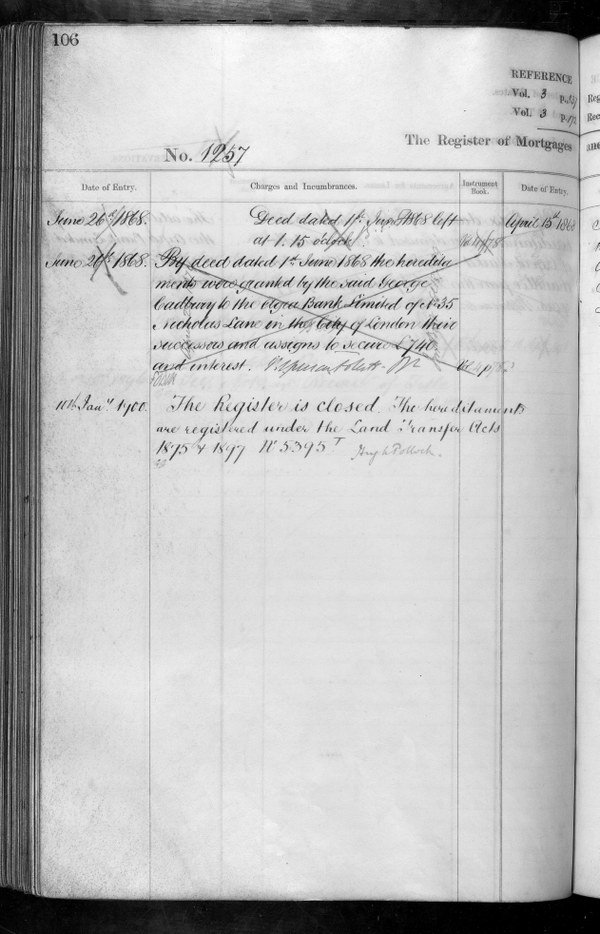 106
REFERENCE
Vol. 3 p.
Vol. 3 p.
The Register of Mortgages
No. 1257
Date of Entry.
Charges and Incumbrances.
Instrument Book.
Date of Entry.
June 26th 1868.
Deed dated 1st June 1868 left
April 15th
at 1.15 o'clock
June 26th 1868.
By deed dated 1st June 1868 the heredita
ments were granted by the said George
Cadbury to the Bank Limited of No 35
Nicholas Lane in the City of London their
successors and assigns to secure £740
and interest.
10th Jany 1900.
The Register is closed. The hereditaments
are registered under the Land Transfer Acts
1875 & 1897 No 5395
Hugh Pollock.